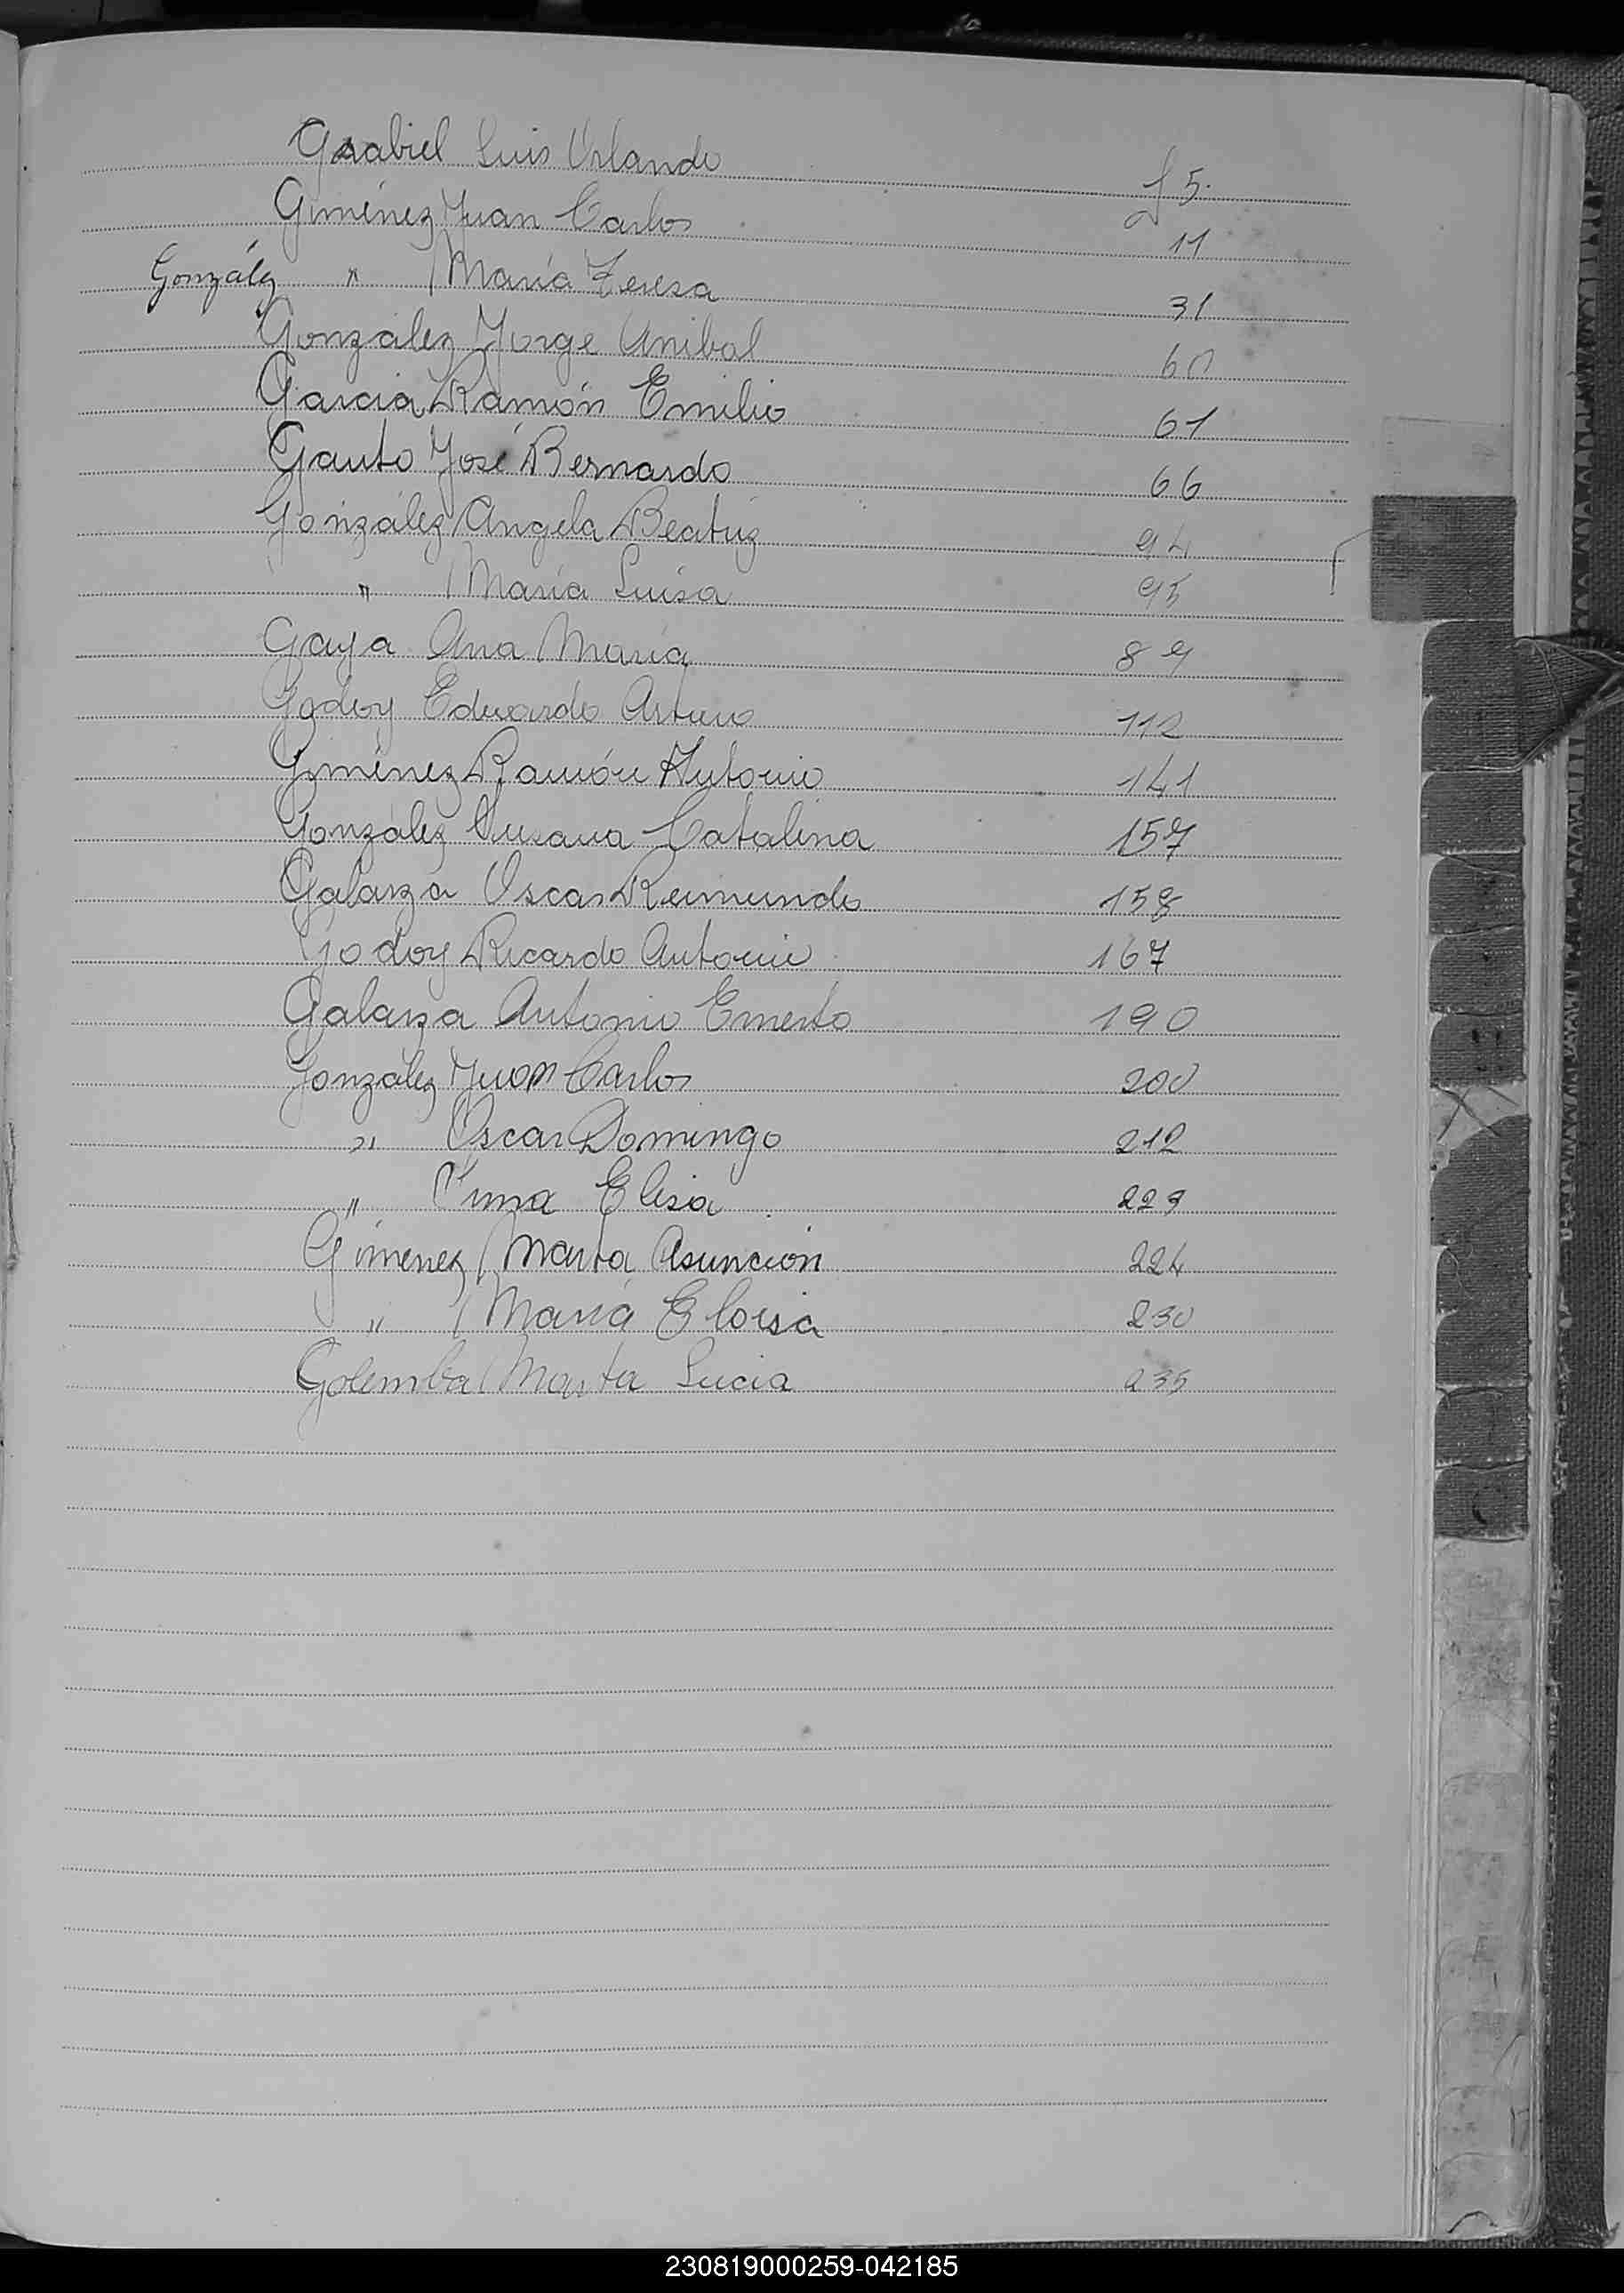 Grabiel Luis Orlando f 5.
Giménez Juan Carlos 11
González " María Teresa 31
González Jorge Anibal 60
Garcia Ramón Emilio 61
Gauto José Bernardo 66
González Angela Beatriz 94
" María Luisa 95
Gaya Ana María 89
Godoy Eduardo Arturo 112
Giménez Ramón Antonio 141
González Susana Catalina 157
Galarza Oscar Reimundo 158
Godoy Ricardo Antonio 167
Galarza Antonio Ernesto 190
González Juan Carlos 200
" Oscar Domingo 212
" Irma Elisa 223
Gimenez Marta Asunción 224
" María Eloisa 230
Golemba Marta Lucia 235
230819000259-042185